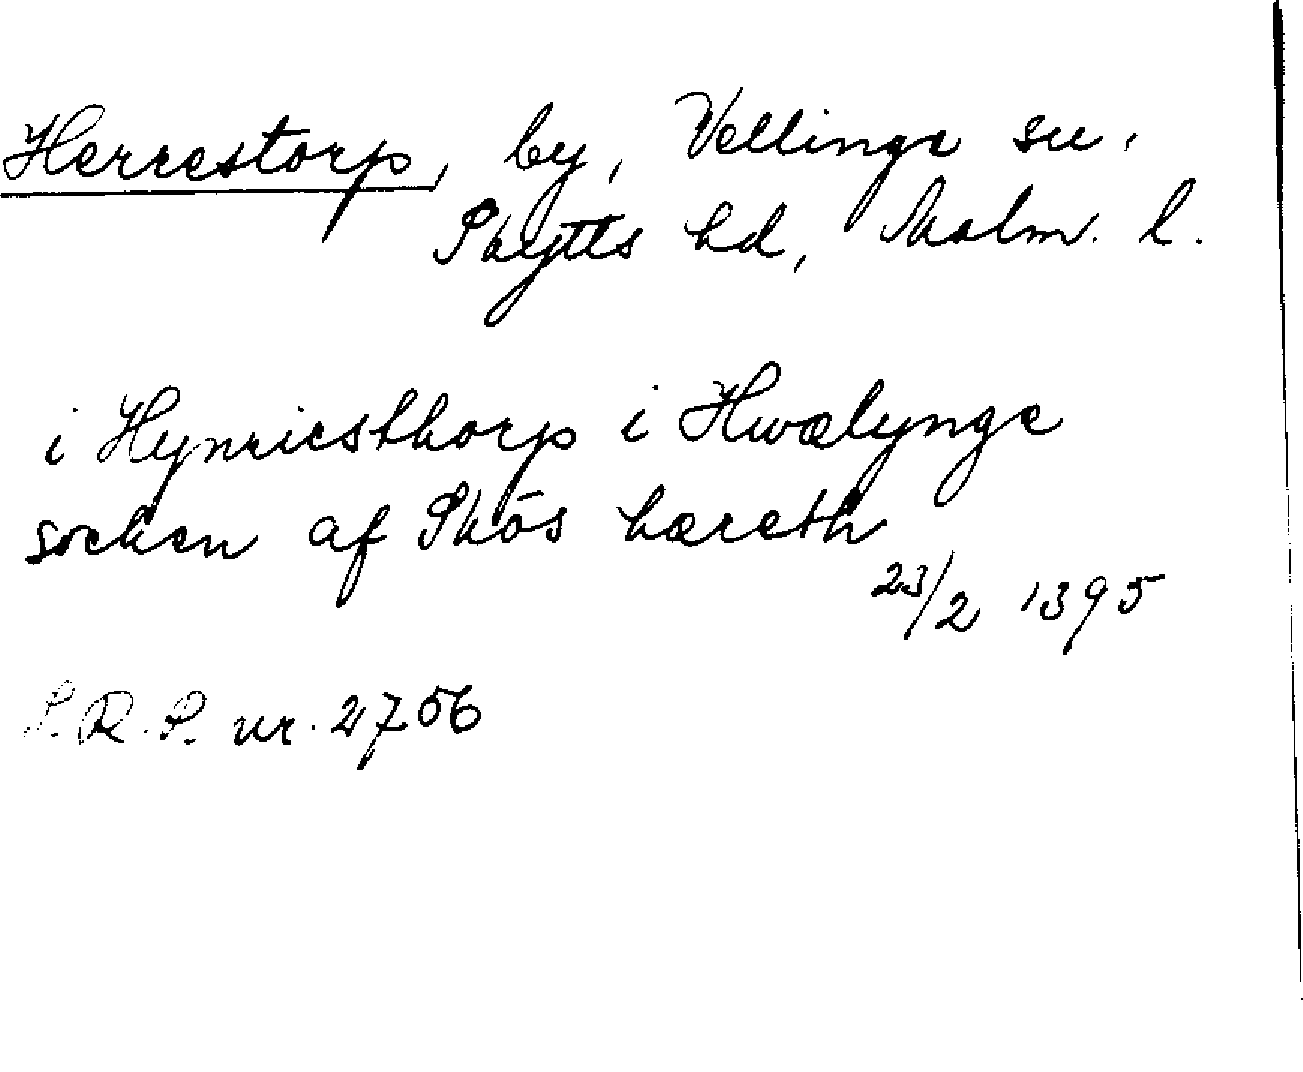 Herrestorp, by, Vellinge sn.
Skytts hd, Malm. l.
i Hynricsthorp i Hwælynge
socken af Skös hæreth
23/2 1395
S.R.P. nr. 2756